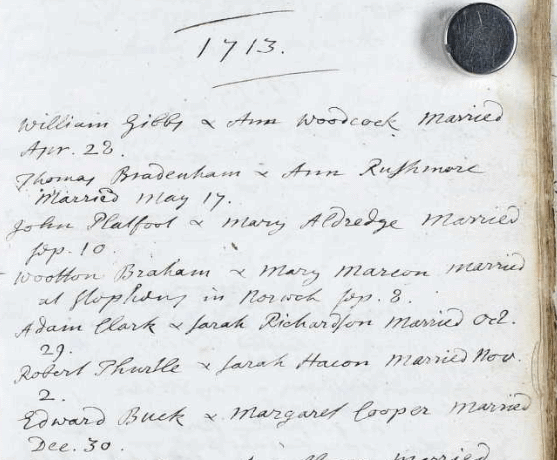 1713.
William Gibbs & Ann Woodcock Married
Apr. 28.
Thomas Bradenham & Ann Rushmore
Married May 17.
John Platfoot & Mary Aldredge Married
Sep. 10.
Wootton Braham & Mary Marcon married
at Stephens in Norwch Sep. 8.
Adam Clark & Sarah Richardson Married Oct.
29.
Robert Thurtle & Sarah Hacon Married Nov.
2.
Edward Buck & Margaret Cooper Married
Dec. 30.
Married